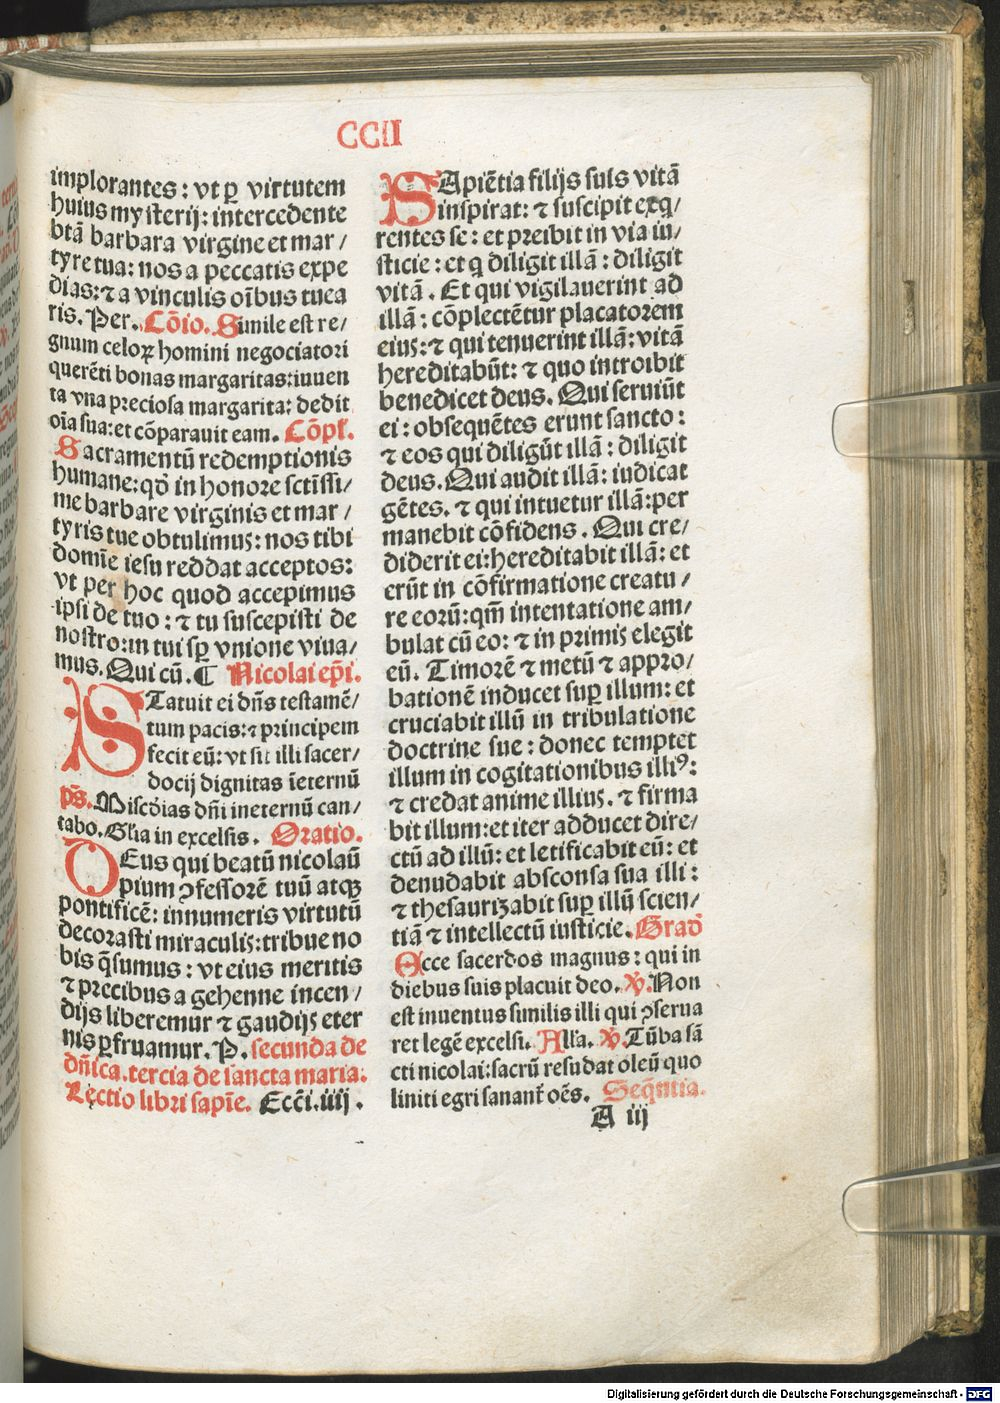 CCII
implorantes: vt ꝑ virtutem
huius mysterij: intercedente
btā barbara virgine et mar/
tyre tua: nos a peccatis expe
dias: ⁊ a vinculis oībus tuea
ris. Per. Cōio. Simile est re/
gnum celoꝝ homini negociatori
querēti bonas margaritas: inuen
ta vna preciosa margarita: dedit
oīa sua: et cōparauit eam. Cōpl'.
Sacramentū redemptionis
humane: qđ in honore sctīssi/
me barbare virginis et mar/
tyris tue obtulimus: nos tibi
domīe iesu reddat acceptos:
vt per hoc quod accepimus
ipsi de tuo: ⁊ tu suscepisti de
nostro: in tui sꝑ vnione viua/
mus. Qui cū. ¶ Nicolai ep̄i.
STatuit ei dn̄s testamē/
tum pacis: ⁊ principem
fecit eū: vt sit illi sacer/
docij dignitas īeternū
ps̄. Misc̄dias dn̄i ineternū can/
tabo. Gl'ia in excelsis. Oratio.
DEus qui beatū nicolaū
pium ꝯfessorē tuū atqꝫ
pontificē: innumeris virtutū
decorasti miraculis: tribue no
bis q̄sumus: vt eius meritis
⁊ precibus a gehenne incen/
dijs liberemur ⁊ gaudijs eter
nis ꝑfruamur. P. secunda de
dn̄ica. tercia de sancta maria:
Lectio libri sapīe. Ecci. iiij.
SApiētia filijs suis vitā
inspirat: ⁊ suscipit exq/
rentes se: et preibit in via iu/
sticie: et q diligit illā: diligit
vitā. Et qui vigilauerint ad
illā: cōplectētur placatorem
eius: ⁊ qui tenuerint illā: vitā
hereditabūt: ⁊ quo introibit
benedicet deus. Qui seruiūt
ei: obsequētes erunt sancto:
⁊ eos qui diligūt illā: diligit
deus. Qui audit illā: iudicat
gētes. ⁊ qui intuetur illā: per
manebit cōfidens. Qui cre/
diderit ei: hereditabit illā: et
erūt in cōfirmatione creatu/
re eorū: qm̄ in tentatione am/
bulat cū eo: ⁊ in primis elegit
eū. Timorē ⁊ metū ⁊ appro/
bationē inducet suꝑ illum: et
cruciabit illū in tribulatione
doctrine sue: donec temptet
illum in cogitationibus illiꝰ:
⁊ credat anime illius. ⁊ firma
bit illum: et iter adducet dire/
ctū ad illū: et letificabit eū: et
denudabit absconsa sua illi:
⁊ thesaurizabit suꝑ illū scien/
tiā ⁊ intellectū iusticie. Grad'
Ecce sacerdos magnus: qui in
diebus suis placuit deo. ℣. Non
est inuentus similis illi qui ꝯserua
ret legē excelsi. All'a. ℣. Tūba sā
cti nicolai: sacrū resudat oleū quo
liniti egri sanant' oēs. Seq̄ntia.
A iij
Digitalisierung gefördert durch die Deutsche Forschungsgemeinschaft - DFG